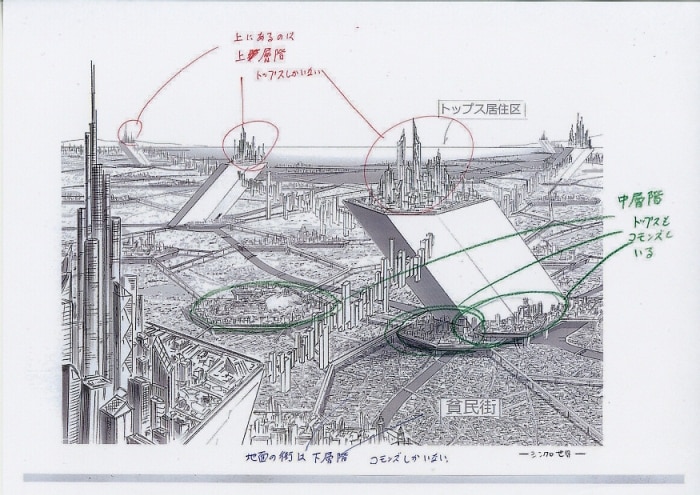 上にあるのは
上層階
トップスしかいない
トップス居住区
中層階
トップスと
コモンズし
いる
貧民街
地面の街は下層階 コモンズしかいない
ーシンクロ世界ー